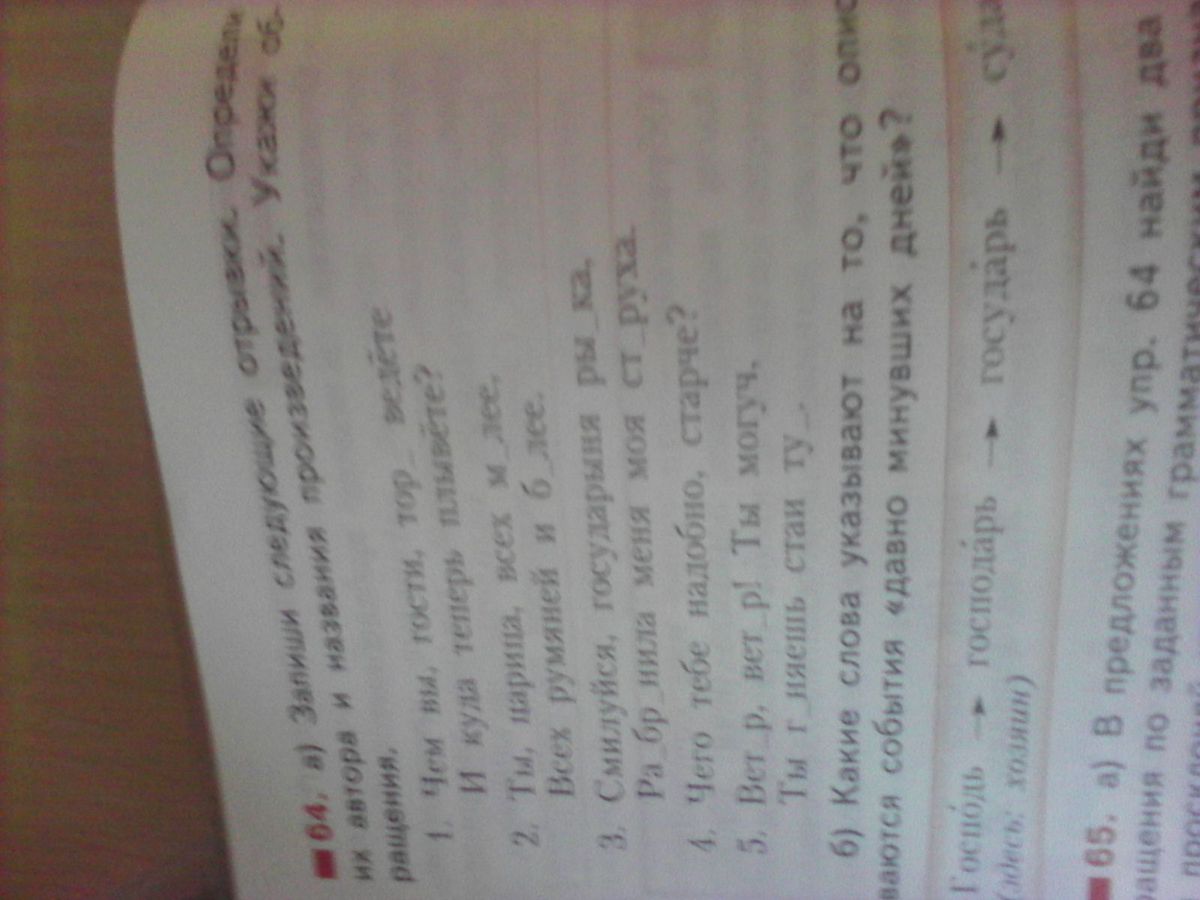 64. а) Запиши следующие отрывки. Определи
их автора и названия произведений. Укажи об-
ращения.
1. Чем вы, гости, тор_ ведёте
И куда теперь плывёте?
2. Ты, царица, всех м_лее,
Всех румяней и б_лее.
3. Смилуйся, государыня ры_ка,
Ра_бр_нила меня моя ст_руха.
4. Чего тебе надобно, старче?
5. Вет_р, вет_р! Ты могуч,
Ты г_няешь стаи ту_.
б) Какие слова указывают на то, что опис
ваются события «давно минувших дней»?
Госпо́дь → господа́рь → госуда́рь → су́да
(здесь: хозяин)
65. а) В предложениях упр. 64 найди два
ращения по заданным грамматическим